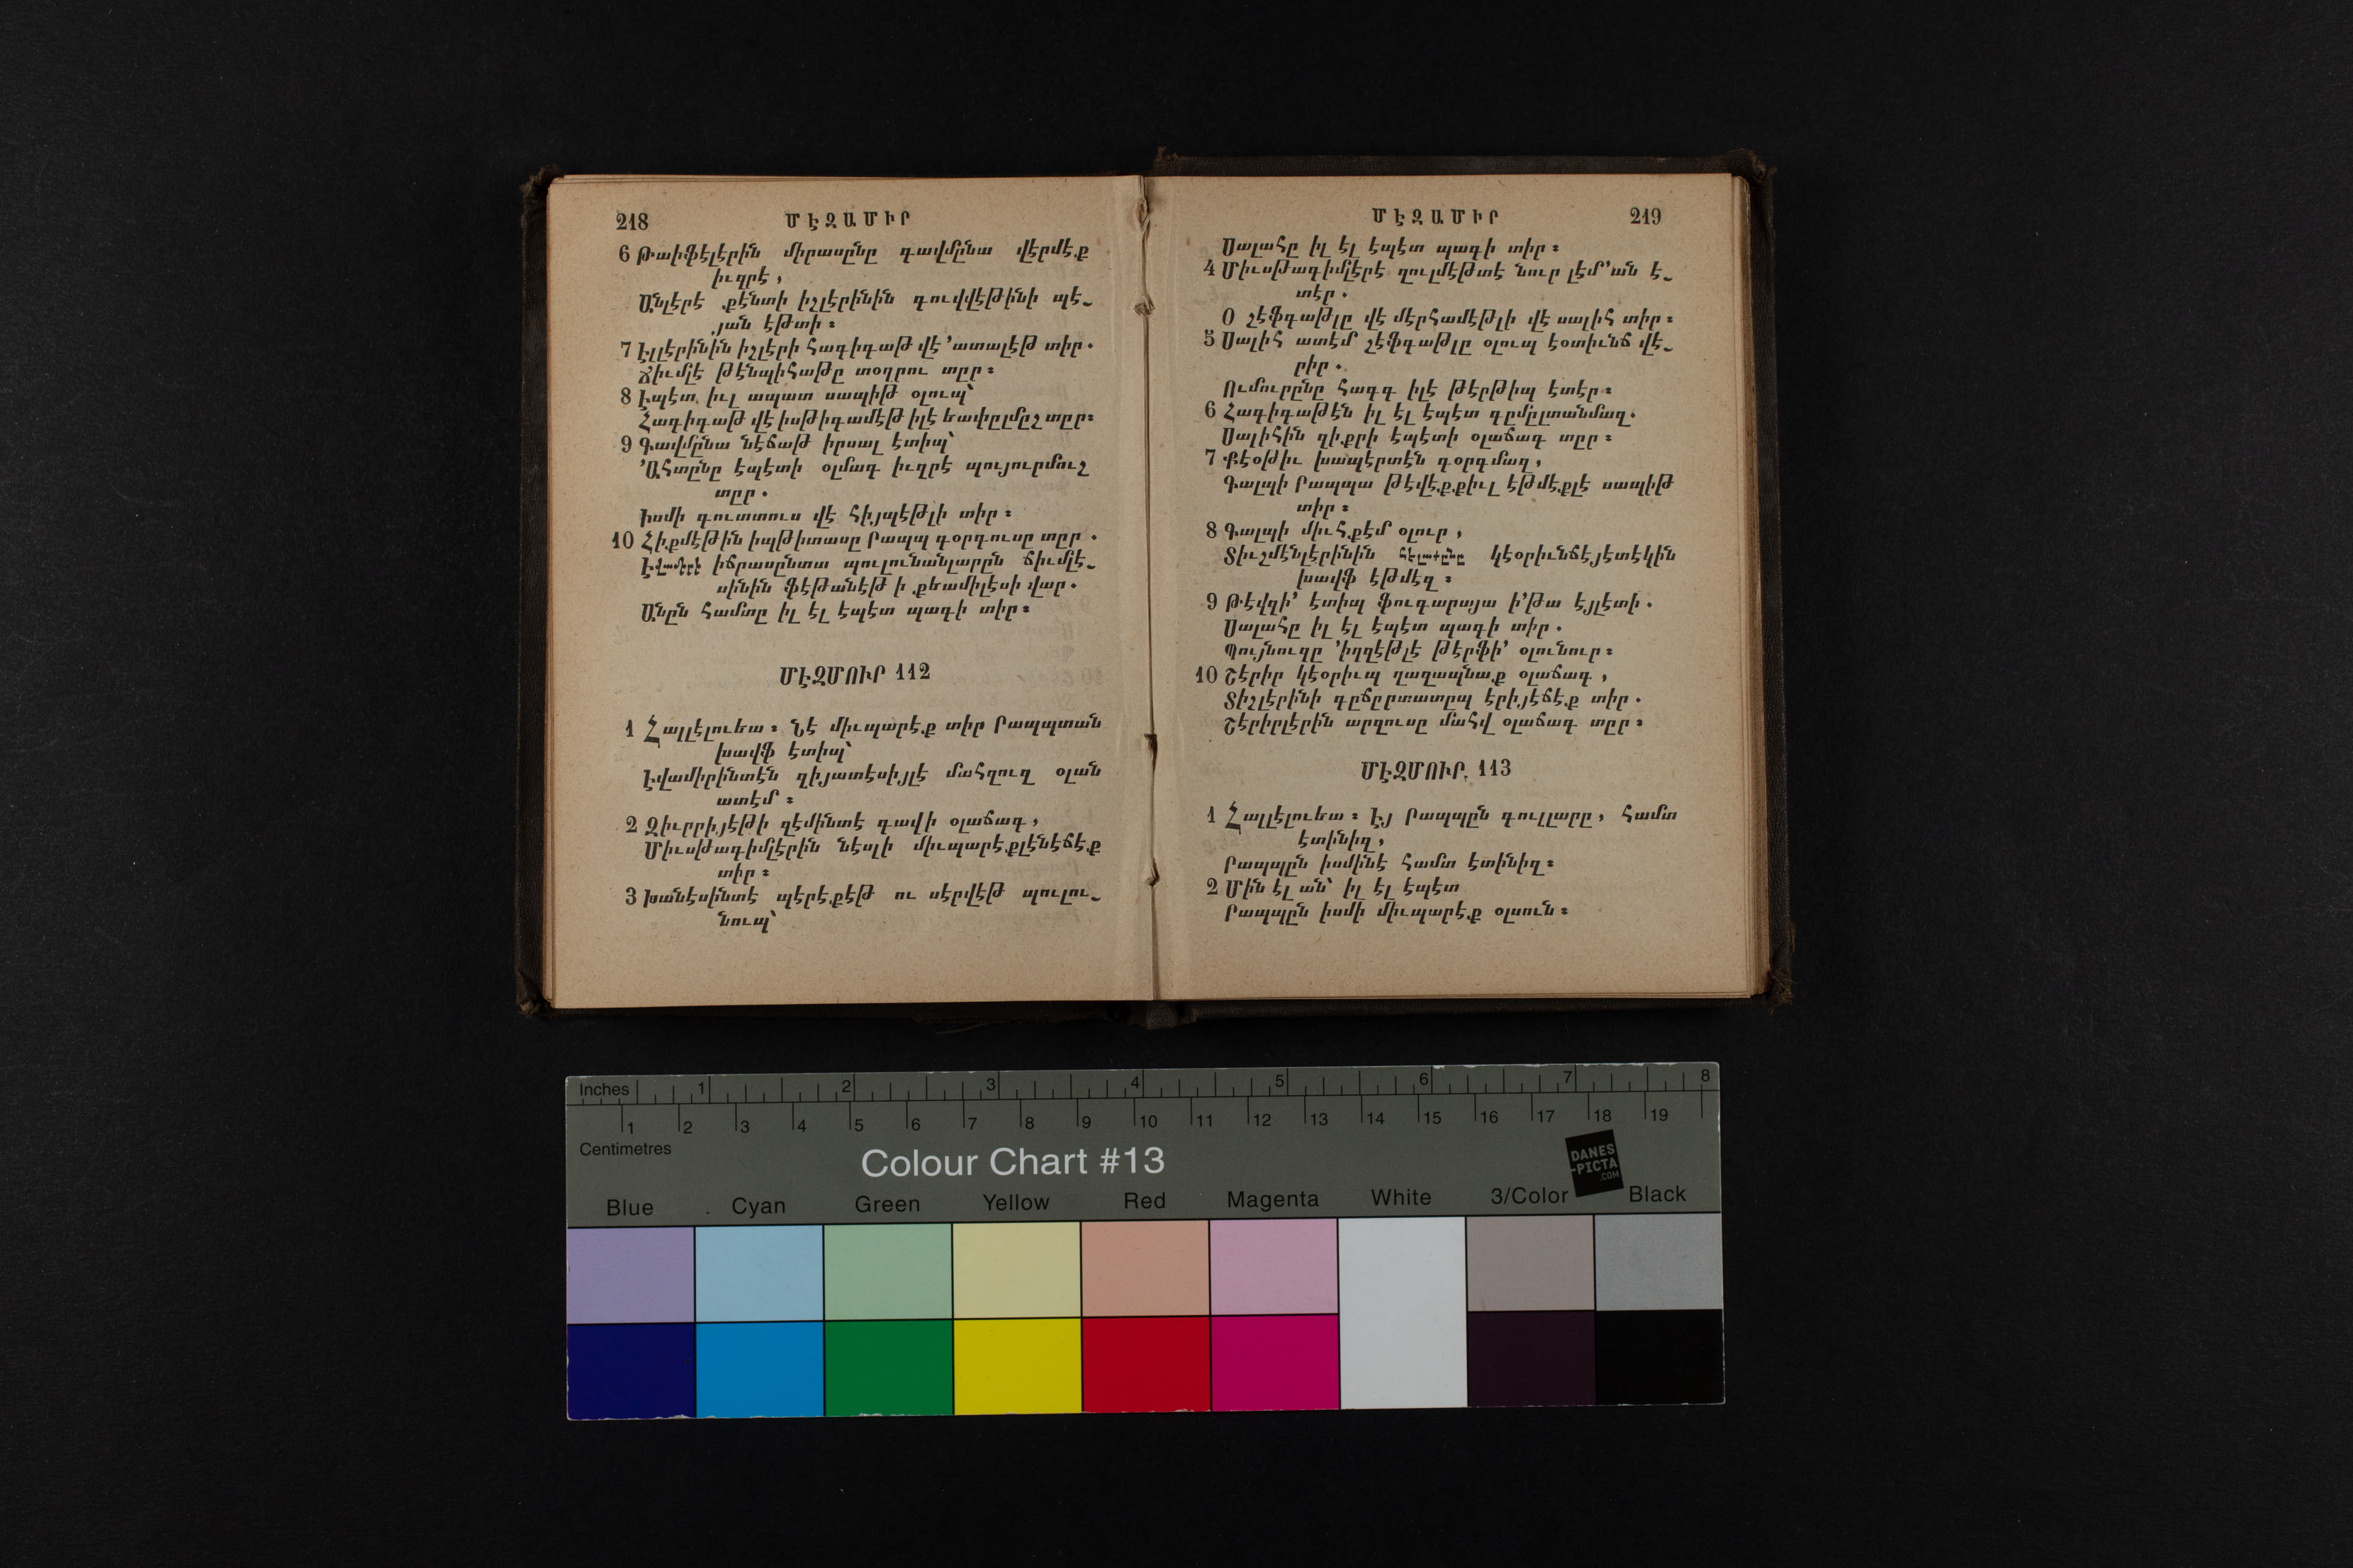 218
ՄԷԶԱՄԻՐ
6 Թաիֆէլէրին միրասընը գավմընա վէրմէք
իւզրէ,
Անլէրէ քէնտի իշլէրինին գուվվէթինի պէ֊
յան էթտի։
7 Էլլէրինին իշլէրի հագիգաթ վէ ՚ատալէթ տիր.
Ճիւմլէ թէնպիհաթը տօղրու տըր։
8 Էպէտ իւլ ապատ սապիթ օլուպ՝
Հագիգաթ վէ իսթիգամէթ իլէ եափըլմըշ տըր։
9 Գավմընա նէճաթ իրսալ էտիպ՝
՚Ահտընը էպէտի օլմագ իւզրէ պույուրմուշ
տըր.
Իսմի գուտտուս վէ հիյպէթլի տիր։
10 Հիքմէթին իպթիտասը Րապպ գօրգուսը տըր.
Էվամէրէ իճրասընտա պուլունանլարըն ճիւմլէ֊
սինին ֆէթանէթ ի քեամիլէսի վար.
Անըն համտը իլ էլ էպէտ պագի տիր։
ՄԷԶՄՈՒՐ 112
1 Հալլէլուեա։ Նէ միւպարէք տիր Րապպտան
խավֆ էտիպ՝
Էվամիրինտէն զիյատէսիյլէ մահզուզ օլան
ատէմ։
2 Զիւրրիյէթի զէմինտէ գավի օլաճագ,
Միւսթագիմլէրին նէսլի միւպարէքլէնէճէք
տիր։
3 Խանէսինտէ պէրէքէթ ու սէրվէթ պուլու֊
նուպ՝
ՄԷԶԱՄԻՐ
219
Սալահը իլ էլ էպէտ պագի տիր։
4 Միւսթագիմլէրէ զուլմէթտէ նուր լէմ՚ան է֊
տէր.
Օ շէֆգաթլը վէ մէրհամէթլի վէ սալիհ տիր։
5 Սալիհ ատէմ շէֆգաթլը օլուպ էօտիւնճ վէ֊
րիր.
Ումուրընը հագգ իլէ թէրթիպ էտէր։
6 Հագիգաթէն իլ էլ էպէտ գըմըլտանմազ.
Սալիհին զիքրի էպէտի օլաճագ տըր։
7 Քէօթիւ խապէրտէն գօրգմազ,
Գալպի Րապպա թէվէքքիւլ էթմէքլէ սապիթ
տիր։
8 Գալպի միւհքէմ օլուր,
Տիւշմէնլէրինին հէլաքընը կէօրիւնճէյէտէկին
խավֆ էթմէզ։
9 Թէվզի՚ էտիպ ֆուգարայա ի՚թա էյլէտի.
Սալահը իլ էլ էպէտ պագի տիր.
Պույնուզը ՚իզզէթլէ թէրֆի՚ օլունուր։
10 Շէրիր կէօրիւպ ղազապնաք օլաճագ,
Տիշլէրինի գըճըրտատըպ էրիյէճէք տիր.
Շէրիրլէրին արզուսը մահվ օլաճագ տըր։
ՄԷԶՄՈՒՐ 113
1 Հալլէլուեա։ Էյ Րապպըն գուլլարը, համտ
էտինիզ,
Րապպըն իսմինէ համտ էտինիզ։
2 Մին էլ ան՝ իլ էլ էպէտ
Րապպըն իսմի միւպարէք օլսուն։
Inches 1 2 3 4 5 6 7 8
1 2 3 4 5 6 7 8 9 10 11 12 13 14 15 16 17 18 19
Centimetres
Colour Chart #13
DANES
-PICTA
.COM
Blue Cyan Green Yellow Red Magenta White 3/Color Black